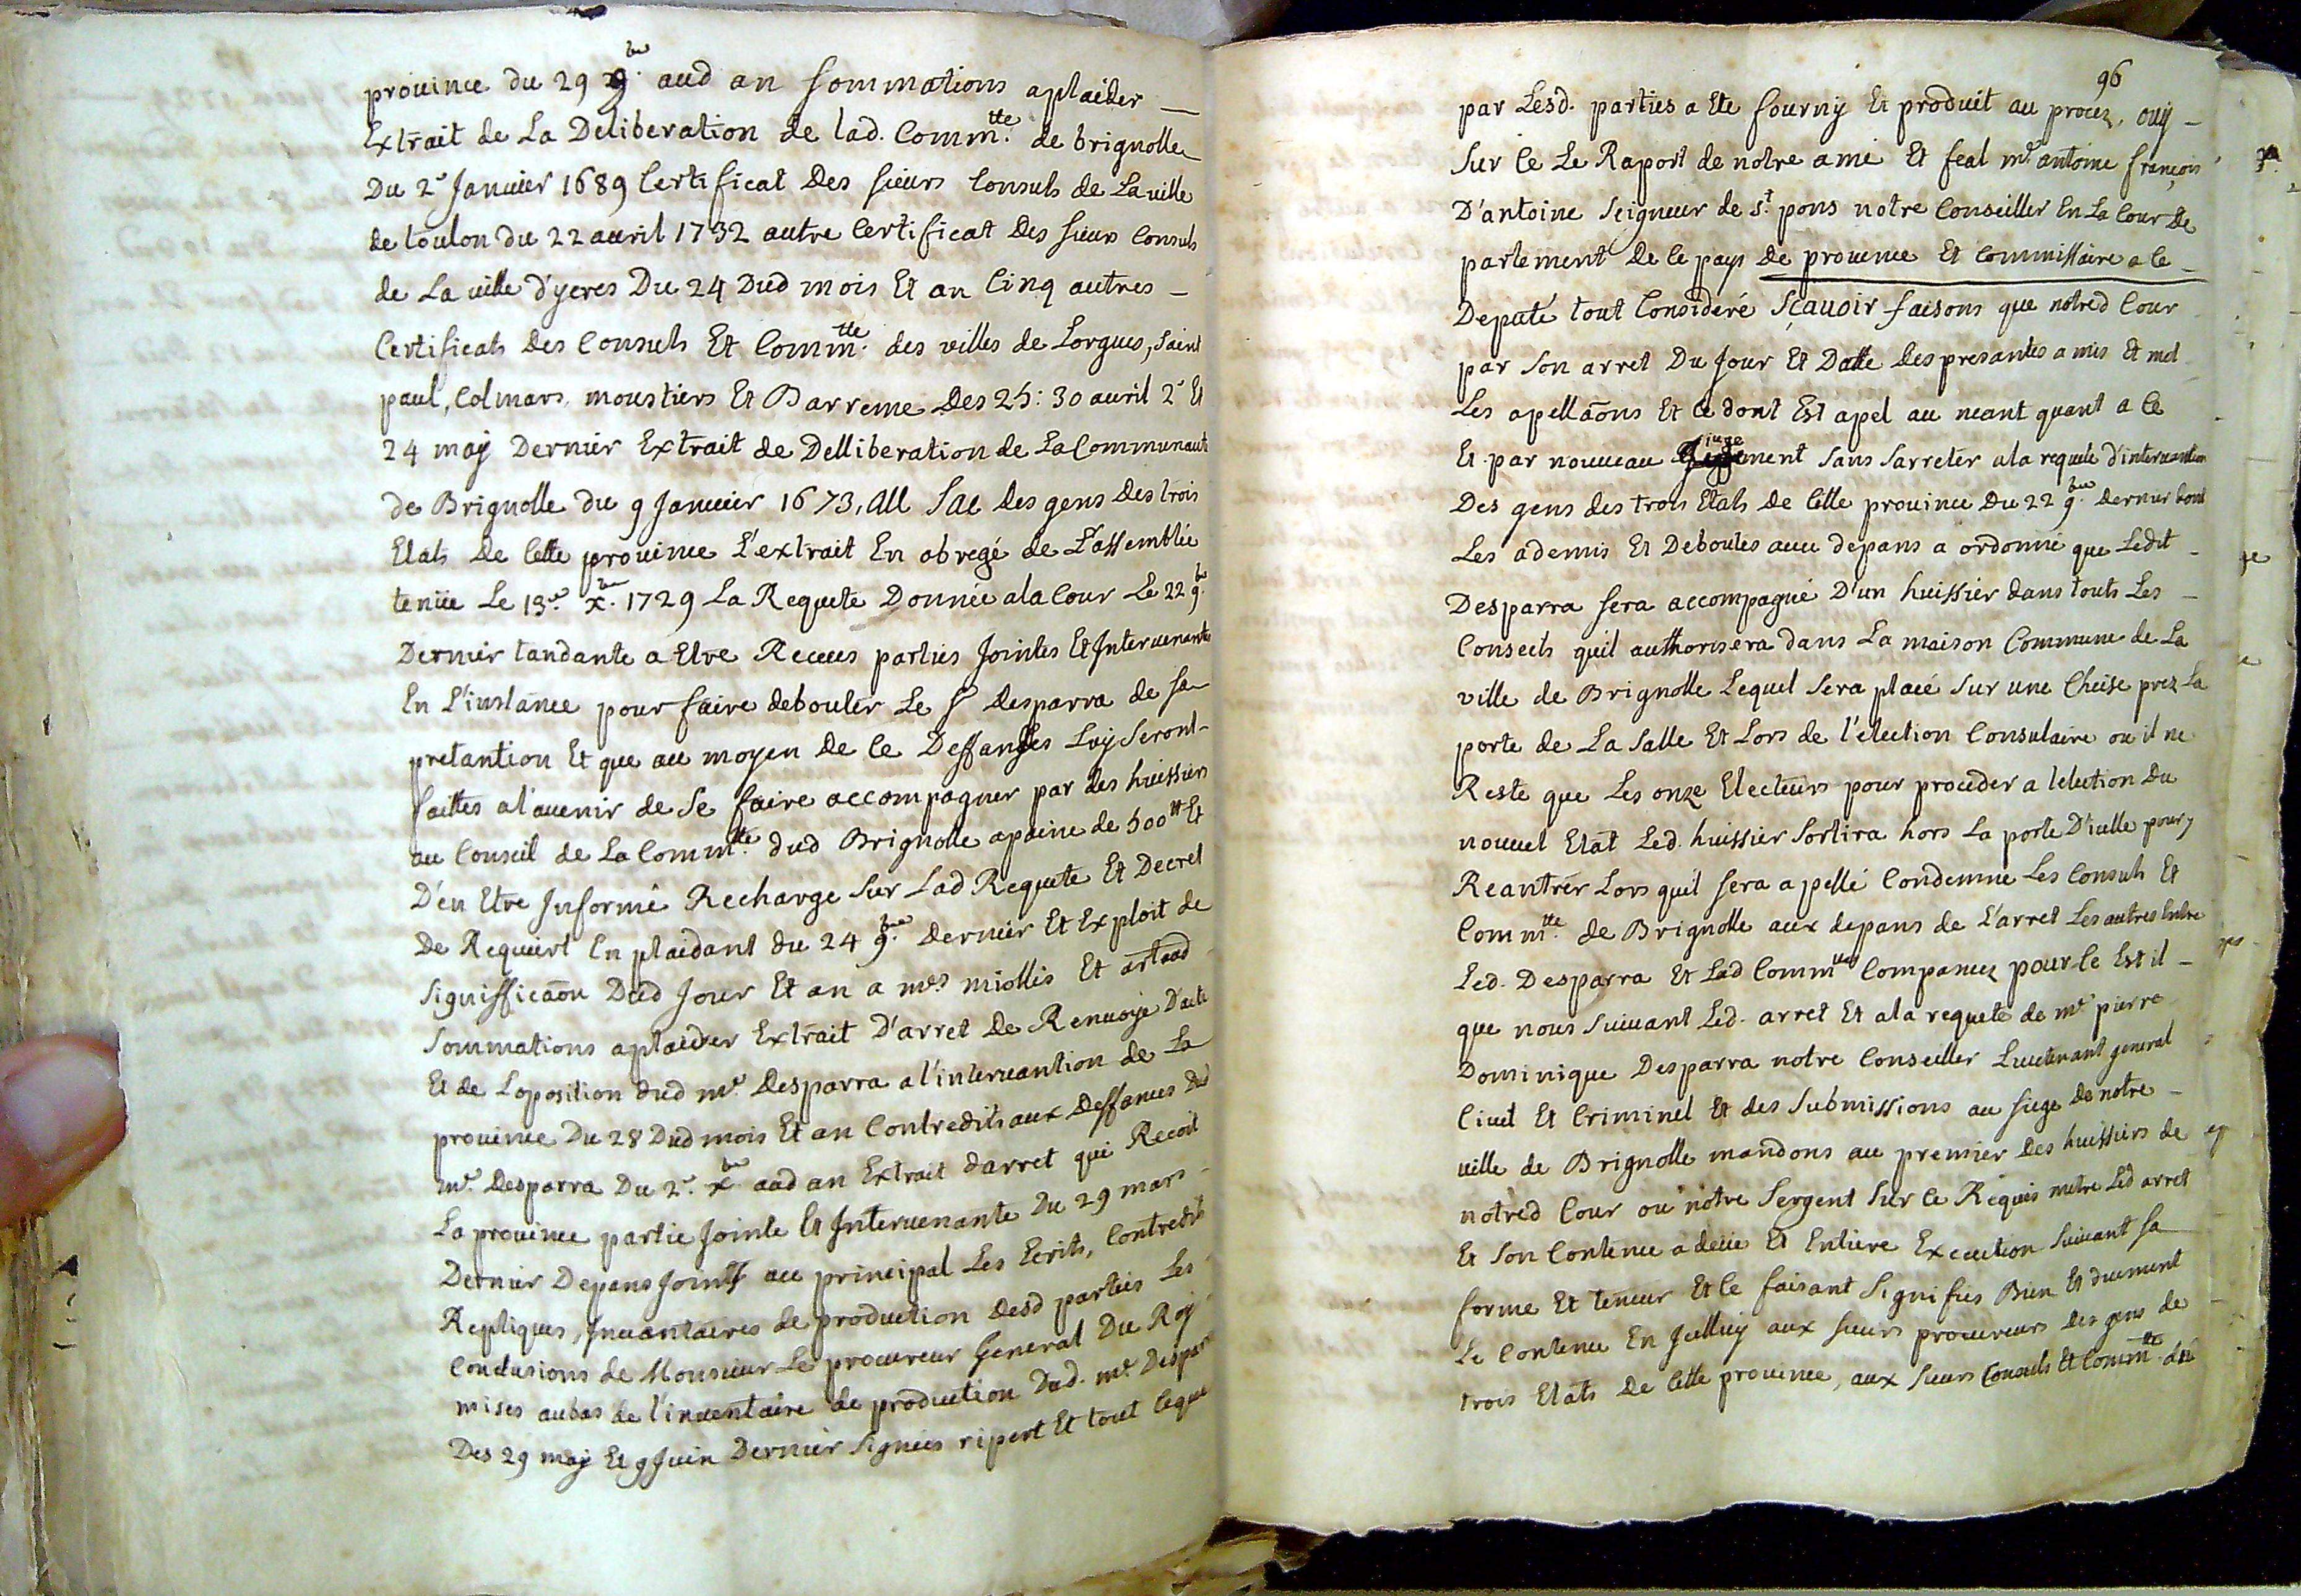 prouince du 29 9.bre aud an sommations aplaider
Extrait de La Deliberation de lad. Comm.tté de brignolle
Du 2e Januier 1689 Certificat Des sieurs Consuls de La ville
de toulon du 22 auril 1732 autre Certificat Des sieurs Consuls
de La uille d'yeres Du 24 Dud mois Et an Cinq autres
Certificats Des Consuls Et Comm.tté des villes de Lorgues, Saint
paul, Colmars, moustiers Et Barreme Des 25: 30 auril 2e Et
24 may Dernier Extrait de Delliberation de La Communauté
de Brignolle du 9 Januier 1673, All Sac Des gens Des trois
Etats De Cette prouince L'extrait En abregé de L'assemblée
tenüe Le 13.e x.bre 1729 La Requete Donnée ala Cour Le 22 9.bre
Dernier tandante a Etre Receues parties Jointes Et Interuenantes
En L'instance pour faire debouter Le Sr Desparra de sa
pretantion Et que au moyen de Ce Deffanses Luy Seront
faittes a l'auenir de Se faire accompagner par des huissiers
au Conseil de La Comm.té dud Brignolle apeine de 500 tt Et
D'en Etre Informé Recharge Sur Lad Requete Et Decret
De Requiert En plaidant du 24 9.bre Dernier Et Exploit de
Signifficaõn Dud Jour Et an a mes miollis Et artaud
Sommations aplaider Extrait D'arret De Renuoye D'acte
Et de Loposition dud me. Desparra a l'interuantion de La
prouince Du 28 Dud mois Et an Contredits aux Deffances dud
me. Desparra Du 2e. x.bre aud an Extrait darret qui Recoit
La prouince partie Jointe Et Interuenante Du 29 mars
Dernier Depans Joints au principal Les Ecrits, Contredits
Repliques, Inuantaires de production Desd parties Les
Conclusions de Monsieur Le procureur General Du Roy
mises aubas de l'inuentaire de production Dud. me. Desparra
Des 29 may Et 9 Juin Dernier Signées ripert Et tout Ceque
96
par Lesd. parties a Eté fourny Et produit au procez, ouy
Sur Ce Le Raport de notre amé Et feal me. antoine françois
D'antoine Seigneur de St. pons notre Conseiller En La Cour De
parlement De Ce pays De prouence Et Commissaire a Ce
Deputé tout Consideré Sçauoir faisons que notred Cour
par Son arret Du Jour Et Datte Des presantes a mis Et met
Les apellaõns Et Ce dont Est apel au neant quant a Ce
Et par nouueau jugement Sans Sarreter ala requete d'interuantion
Des gens des trois Etats De Cette prouince Du 22 9.bre Dernier dont
Les a demis Et Deboutes auec depans a ordonné que Ledit
Desparra Sera accompagné D'un huissier dans touts Les
Conseils quil authorisera dans La maison Commune de La
ville de Brignolle Lequel Sera placé Sur une Cheise prez La
porte de La Salle Et Lors de l'election Consulaire ou il ne
Reste que Les onze Electeurs pour proceder a lelection Du
nouuel Etat Led. huissier Sortira hors La porte D'icelle pour y
Reantrer Lors quil Sera apellé Condemne Les Consuls Et
Comm.tté de Brignolle aux depans de L'arret Les autres Entre
Led. Desparra Et Lad Comm.tté Compancez pour Ce Est il
que nous Suiuant Led. arret Et ala requete de me pierre
Dominique Desparra notre Conseiller Lieutenant general
Ciuil Et Criminel Et des Submissions au Siege De notre
uille de Brignolle mandons au premier Des huissiers de
notred Cour ou notre Sergent Sur Ce Requis metre Led arret
Et Son Contenu a deüe Et Entiere Execution Suiuant Sa
forme Et teneur Et Ce faisant Signifies Bien Et duement
Le Contenu En Jcelluy aux Sieurs procureurs Des gens de
trois Etats De Cette prouince, aux Sieurs Consuls Et Comm.tté du